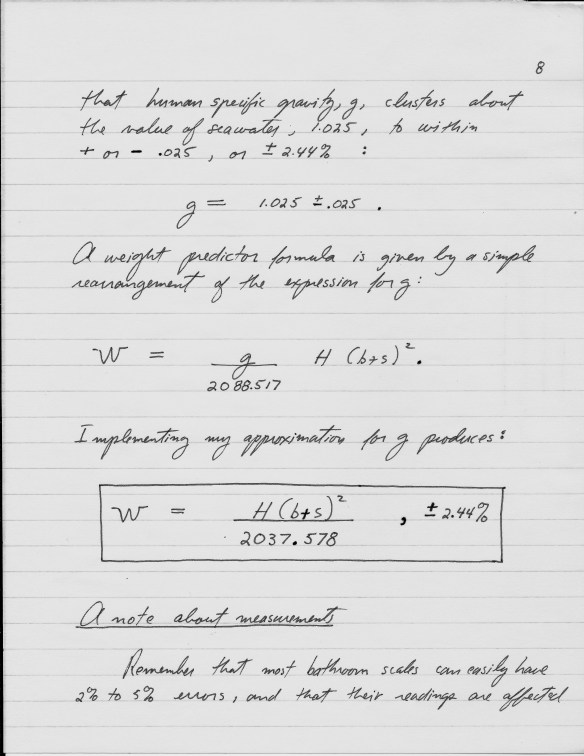 8
that human specific gravity, g, clusters about
the value of seawater, 1.025, to within
+ or - .025, or ± 2.44% :
g = 1.025 ± .025 .
A weight predictor formula is given by a simple
rearrangement of the expression for g:
W = g/2088.517 H (b+s)².
Implementing my approximation for g produces:
W = H (b+s)²/2037.578 , ± 2.44%
A note about measurements
Remember that most bathroom scales can easily have
2% to 5% errors, and that their readings are affected